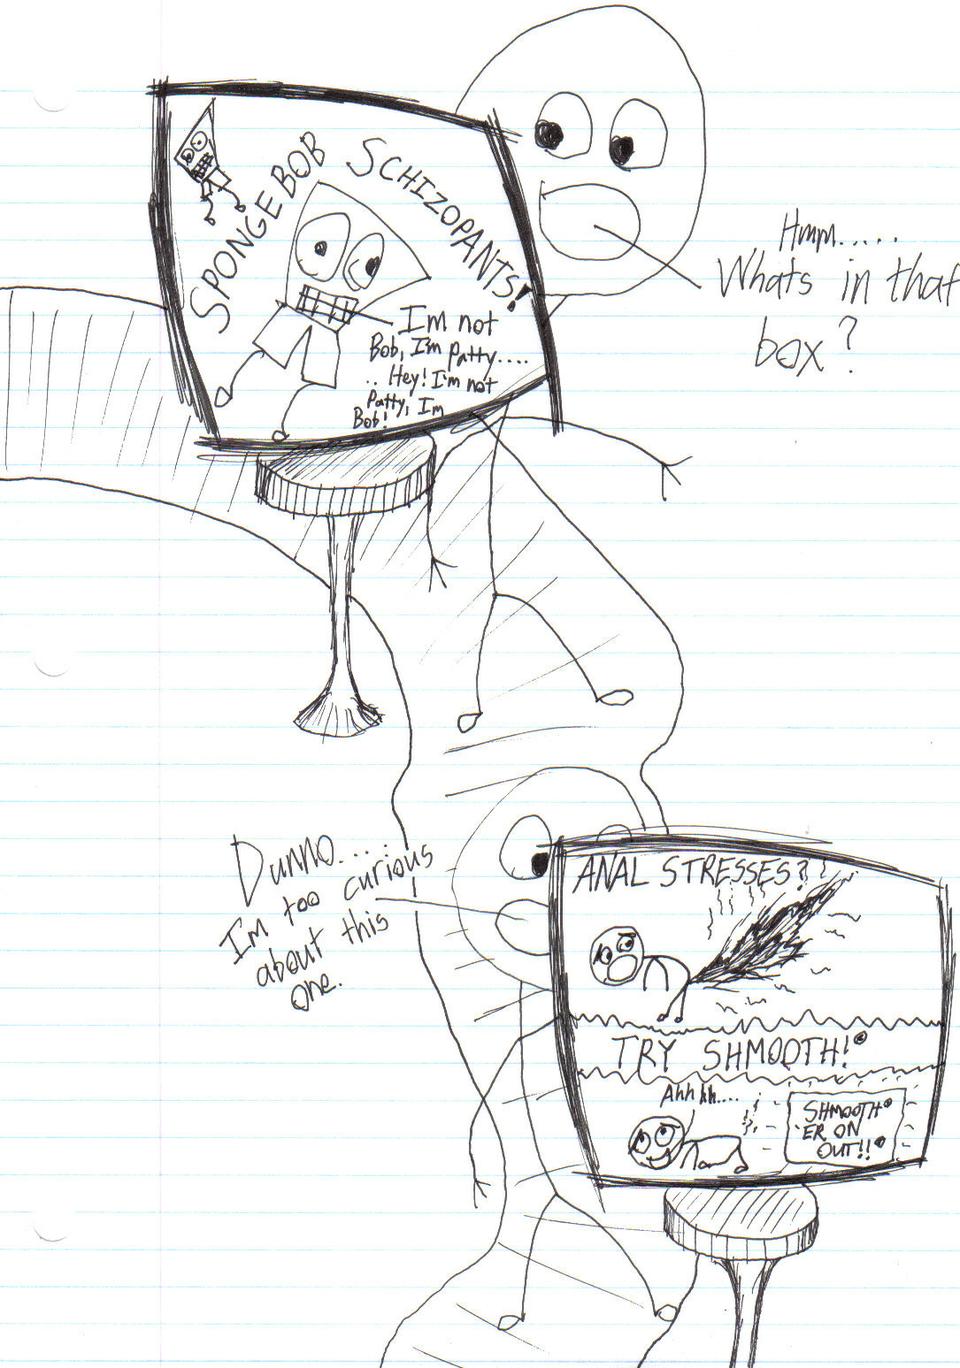 SPONGEBOB SCHIZOPANTS!
I'm not
Bob, I'm patty....
.. Hey! I'm not
Patty, I'm
Bob!
Hmm.....
Whats in that
box?
Dunno.....
I'm too curious
about this
one.
ANAL STRESSES?
TRY SHMOOTH!®
Ahhhh....
SHMOOTH®
ER ON
OUT!!®